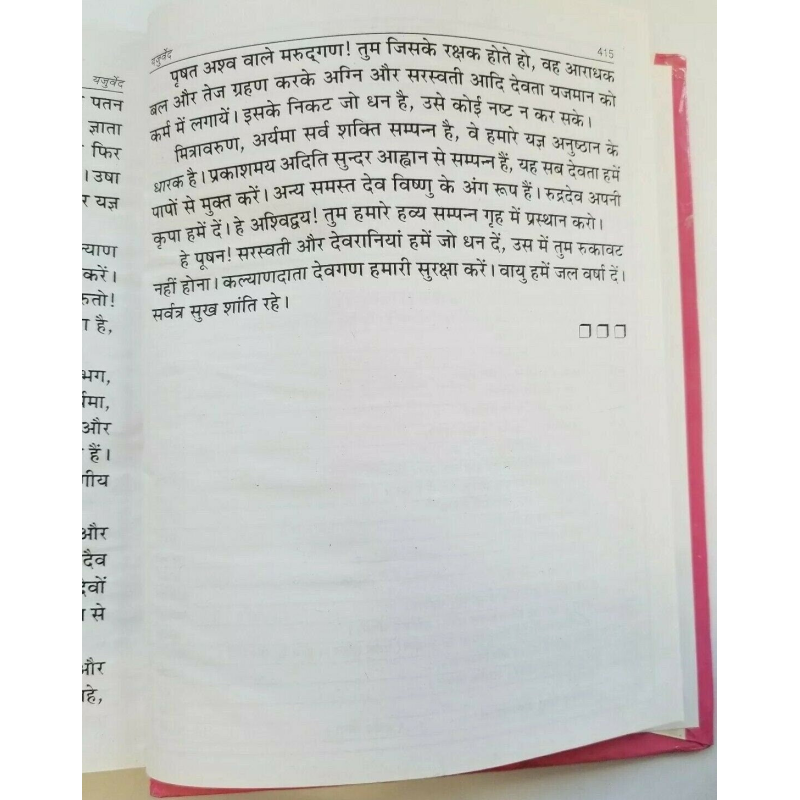 यजुर्वेद
पतन
ज्ञाता
फिर
। उषा
यज्ञ
करें।
है,
और
हैं।
और
दैव
से
और
यजुर्वेद 415
पृषत अश्व वाले मरुद्गण! तुम जिसके रक्षक होते हो, वह आराधक
बल और तेज ग्रहण करके अग्नि और सरस्वती आदि देवता यजमान को
कर्म में लगायें। इसके निकट जो धन है, उसे कोई नष्ट न कर सके।
मित्रावरुण, अर्यमा सर्व शक्ति सम्पन्न है, वे हमारे यज्ञ अनुष्ठान के
धारक है। प्रकाशमय अदिति सुन्दर आह्वान से सम्पन्न हैं, यह सब देवता हमें
पापों से मुक्त करें। अन्य समस्त देव विष्णु के अंग रूप हैं। रुद्रदेव अपनी
कृपा हमें दें। हे अश्विद्वय! तुम हमारे हव्य सम्पन्न गृह में प्रस्थान करो।
हे पूषन! सरस्वती और देवरानियां हमें जो धन दें, उस में तुम रुकावट
नहीं होना। कल्याणदाता देवगण हमारी सुरक्षा करें। वायु हमें जल वर्षा दें।
सर्वत्र सुख शांति रहे।